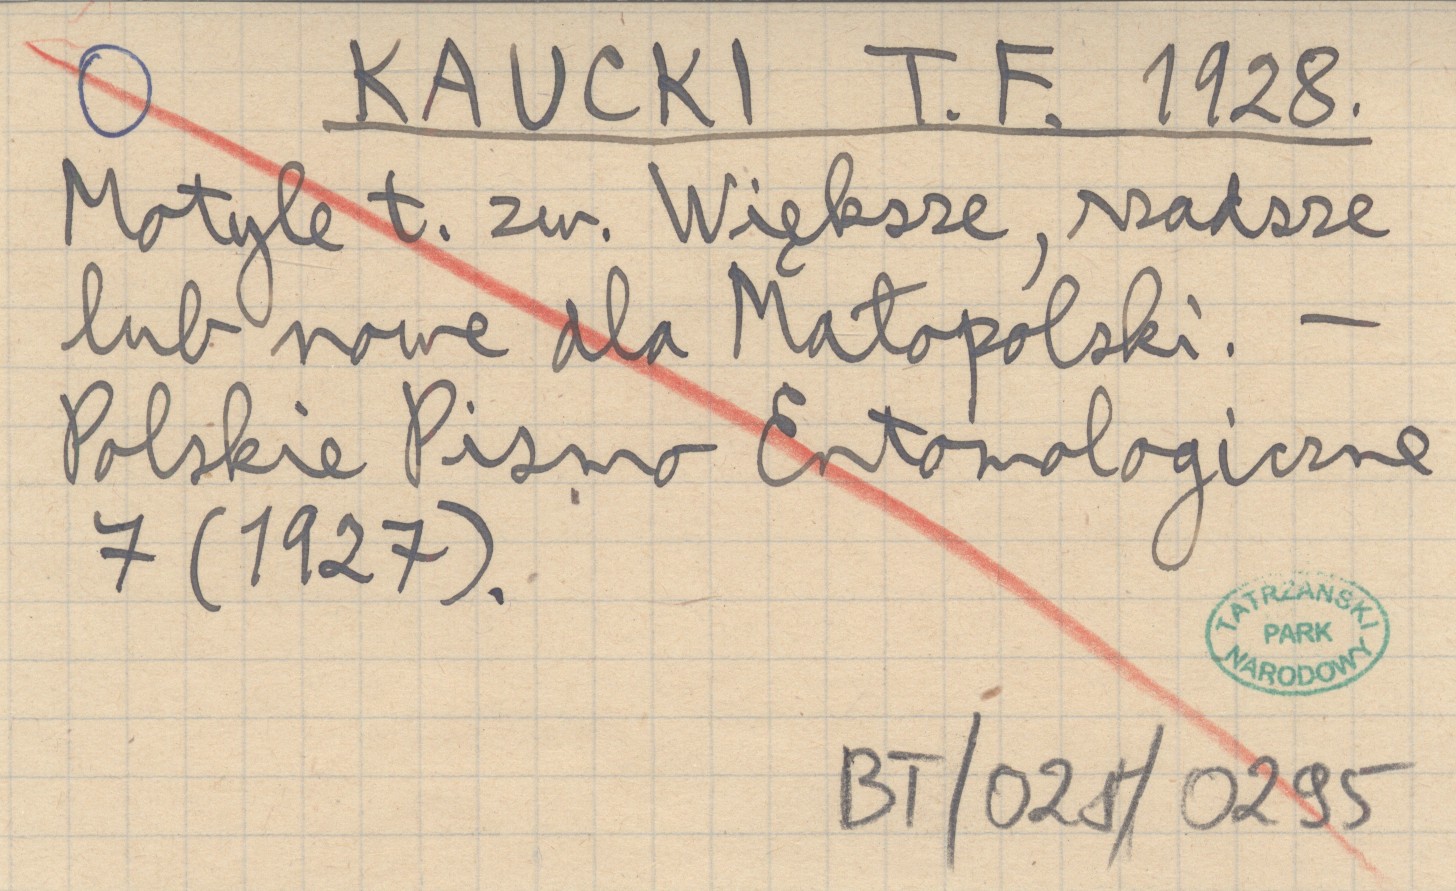 KAUCKI T. F. 1928.
Motyle t. zw. Większe, rzadsze
lub nowe dla Małopolski. —
Polskie Pismo Entomologiczne
7 (1927).
TATRZAŃSKI
PARK
NARODOWY
BT/021/0295